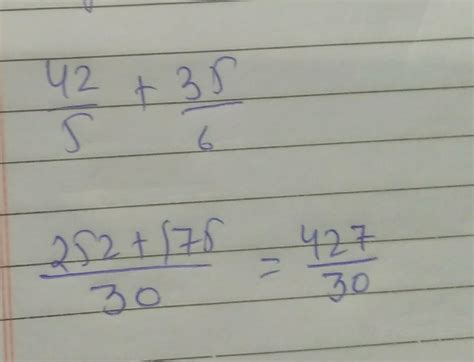 42/5 + 35/6
252+175/30 = 427/30